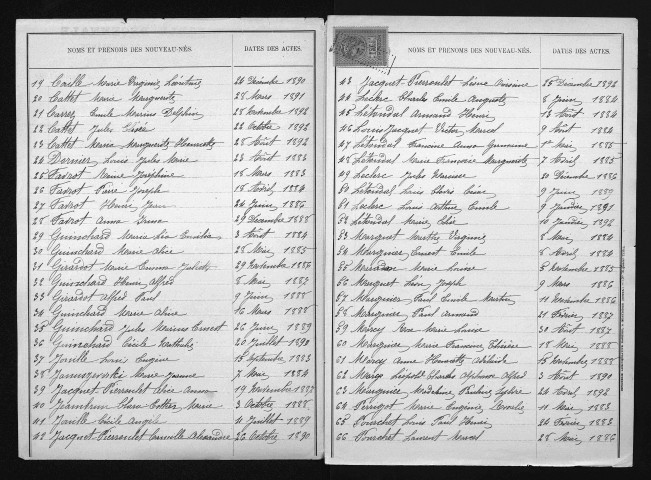 NOMS ET PRÉNOMS DES NOUVEAU-NÉS. DATES DES ACTES.
19 Caille Marie Virginie 26 Décembre 1890
20 Cattet Marie Marguerite 28 Mars 1891
21 Carrez Emile Marius Delphin 28 Novembre 1892
22 Cattet Jules 22 Octobre 1892
23 Cattet Marie Marguerite Henriette 28 Août 1892
24 Dornier Louis Jules Marie 23 Août 1883
25 Fadrot Marie Joséphine 18 Mars 1883
26 Fadrot Joseph 18 Avril 1884
27 Fadrot Henri Jean 24 Juin 1886
28 Fadrot Anna 29 Décembre 1888
29 Guinchard Maria 3 Août 1884
30 Guinchard Marie Alice 28 Mai 1885
31 Girardot Marie Emma Juliette 29 Novembre 1886
32 Guinchard Henri Alfred 8 Mai 1887
33 Girardot Alfred Paul 9 Juin 1888
34 Guinchard Marie Aline 16 Mars 1888
35 Guinchard Jules Marius Ernest 26 Juin 1889
36 Guinchard Cécile Mathilde 20 Juillet 1890
37 Jouille Eugène 15 Septembre 1883
38 Marie Jeanne 7 Mai 1884
39 Jacquet-Pierroulet Alice Anna 19 Novembre 1887
40 Marie 3 Octobre 1888
41 Cécile Angèle 11 Juillet 1889
42 Jacquet-Pierroulet Camille Alexandre 26 Octobre 1890
NOMS ET PRÉNOMS DES NOUVEAU-NÉS. DATES DES ACTES.
43 Jacquet-Pierroulet 25 Décembre 1892
44 Leclerc Charles Emile Auguste 8 Juin 1884
45 Létondal Armand Henri 13 Août 1884
46 Louis Jacquet Victor Marcel 9 Août 1884
47 Létondal Francine Anna Germaine 1er Mai 1885
48 Létondal Marie Françoise Marguerite 7 Avril 1885
49 Leclerc Jules 20 Décembre 1886
50 Létondal Louis 9 Juin 1889
51 Leclerc Louis Arthur Emile 9 Janvier 1891
52 Létondal Marie 10 Janvier 1892
53 Marguet Marthe Virginie 8 Mai 1884
54 Marguier Ernest Emile 8 Avril 1884
55 Marie Louise 5 Novembre 1885
56 Mougeot Léon Joseph 9 Mars 1886
57 Marguier Paul Emile 11 Novembre 1886
58 Marguier Paul Armand 21 Février 1887
59 Rose Marie Louise 30 Août 1887
60 Marguier Marie Françoise Thérèse 18 Mai 1888
61 Anne Henriette Adelaïde 15 Novembre 1888
62 Léopold Charles Alphonse Alfred 3 Août 1890
63 Marguier Madeleine Pauline 24 Avril 1892
64 Perrigot Marie Eugénie 11 Mai 1883
65 Pourchet Louis Paul Henri 24 Février 1883
66 Pourchet Laurent Marcel 28 Mai 1886